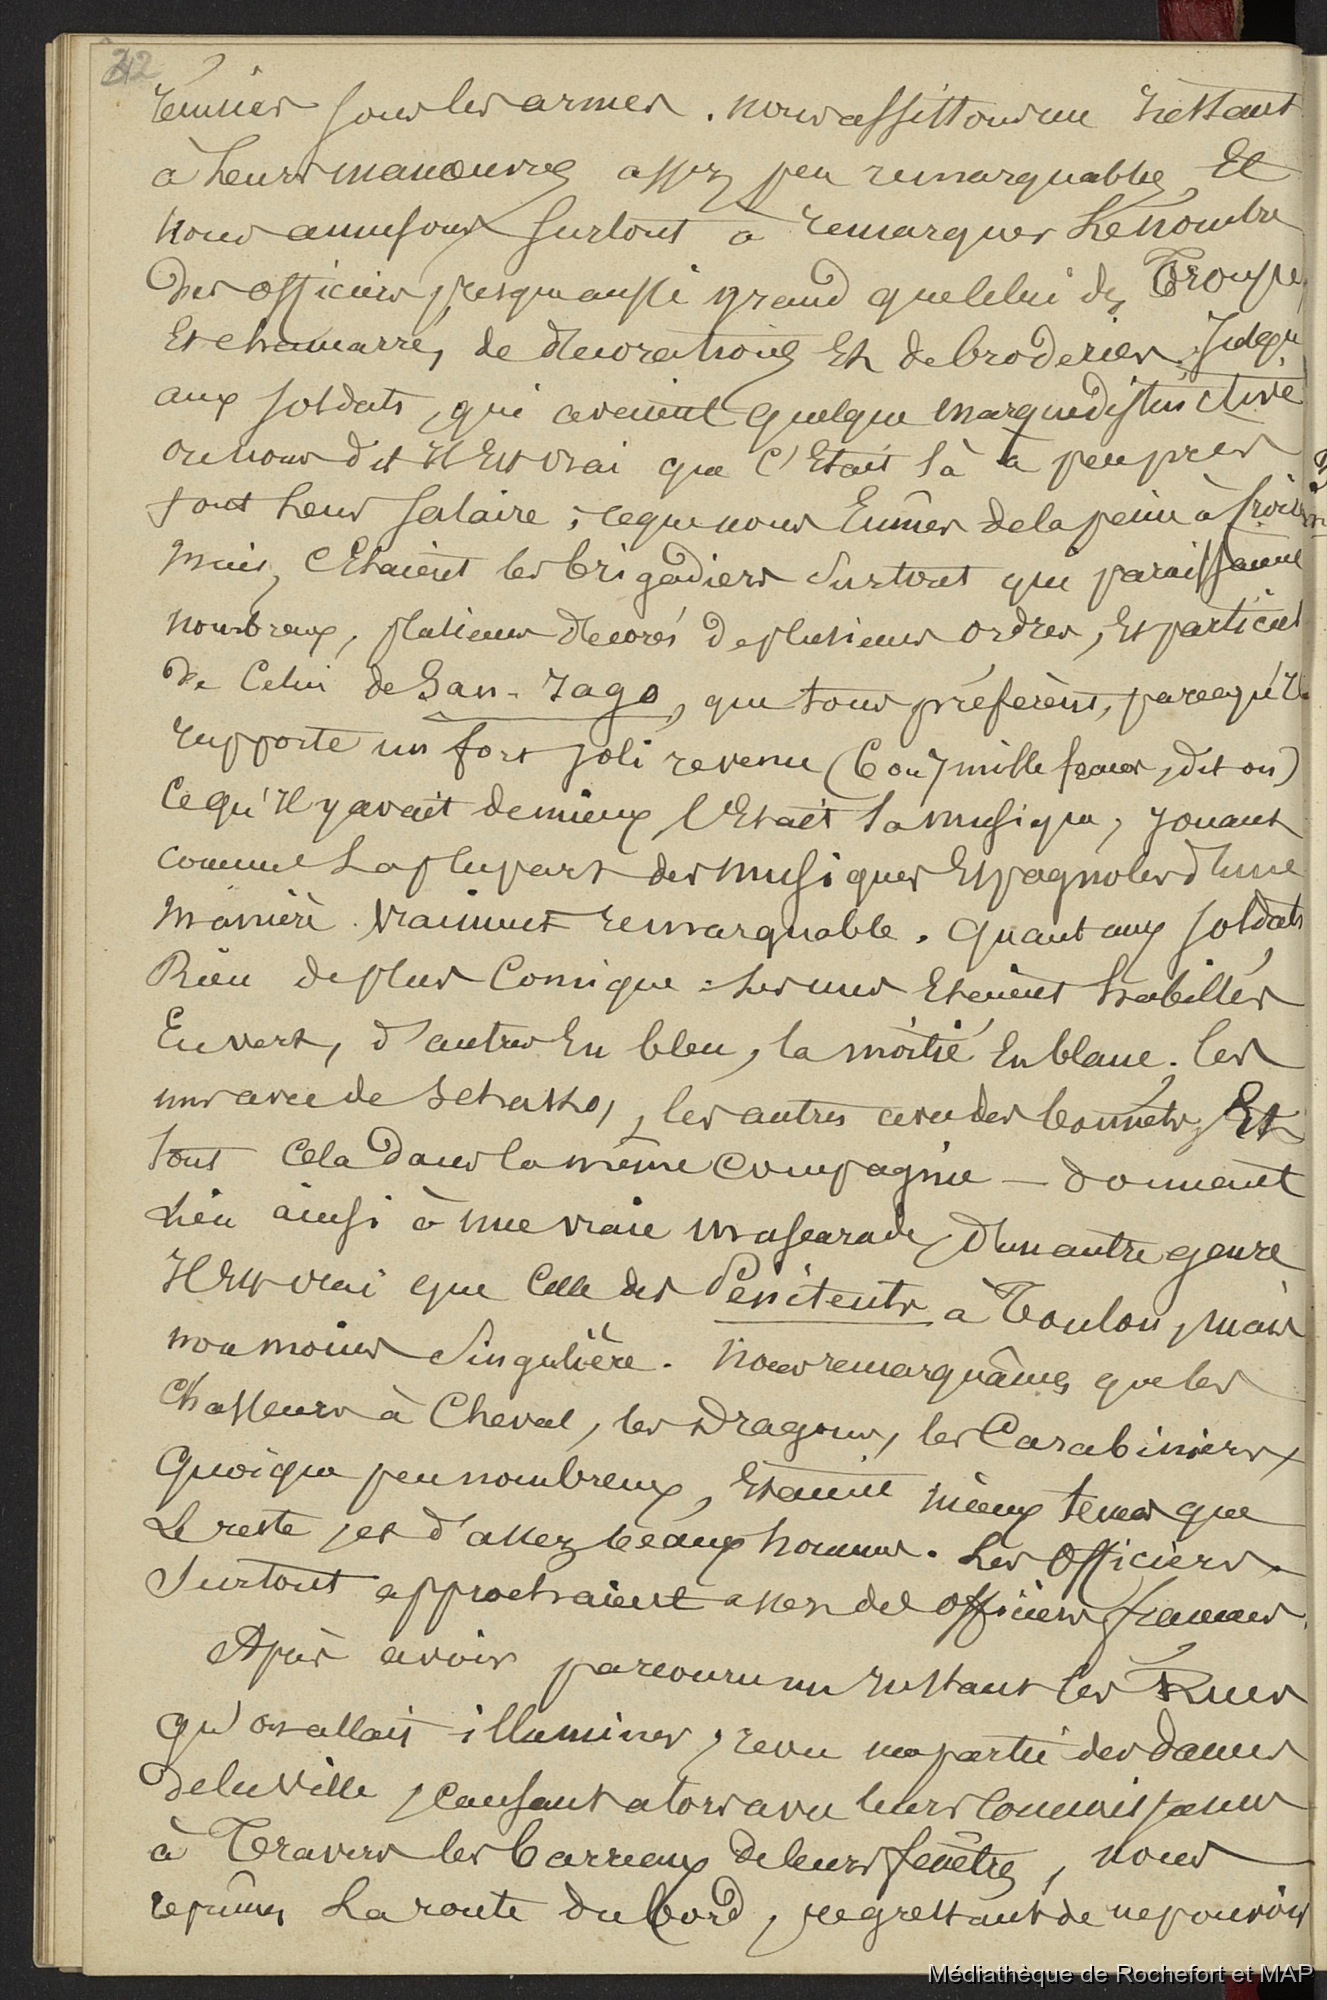 42
réunies sous les armes. nous assistons un instant
à leurs manœuvres assez peu remarquables, Et
nous amusons surtout à remarquer le nombre
des officiers, presqu'aussi grand que celui des Troupes,
Et chamarrés de décorations Et de broderies. Jusqu'
aux soldats, qui avaient quelque marque distinctive
on nous dit Il Est vrai que c'Etait là à peu près
tout leur salaire; ce que nous Eûmes de la peine à croire
Mais, c'Etaient les brigadiers surtout qui paraissaient
nombreux, plusieurs décorés de plusieurs ordres, Et particul
de Celui de San-Iago, que tous préfèrent, parcequ'Il
rapporte un fort joli revenu (6 ou 7 mille francs, dit on)
Ce qu'Il y avait de mieux, c'Etait la musique, jouant
comme la plupart des musiques Espagnoles d'une
manière vraiment remarquable. Quant aux soldats
Rien de plus Comique: les uns Etaient habillés
En vert, d'autres En bleu, la moitié En blanc. les
uns avec de Schakos, les autres avec des bonnets, Et
tout cela dans la même compagnie — donnant
Lieu ainsi à une vraie mascarade, d'un autre genre
Il Est vrai que Celle des Pénitents à Toulon, mais
non moins singulière. Nous remarquâmes que les
Chasseurs à Cheval, les Dragons, les Carabiniers,
Quoique peu nombreux, Etaient mieux tenus que
Le reste, et d'assez beaux hommes. Les Officiers
Surtout approchaient assez des officiers français.
Après avoir parcouru un Instant les Rues
qu'on allait illuminer, revu une partie des dames
de la ville, causant alors avec leurs connaissances
à Travers les barreaux de leurs fenêtres, nous
reprîmes La route du bord, regrettant de ne pouvoir
Médiathèque de Rochefort et MAP